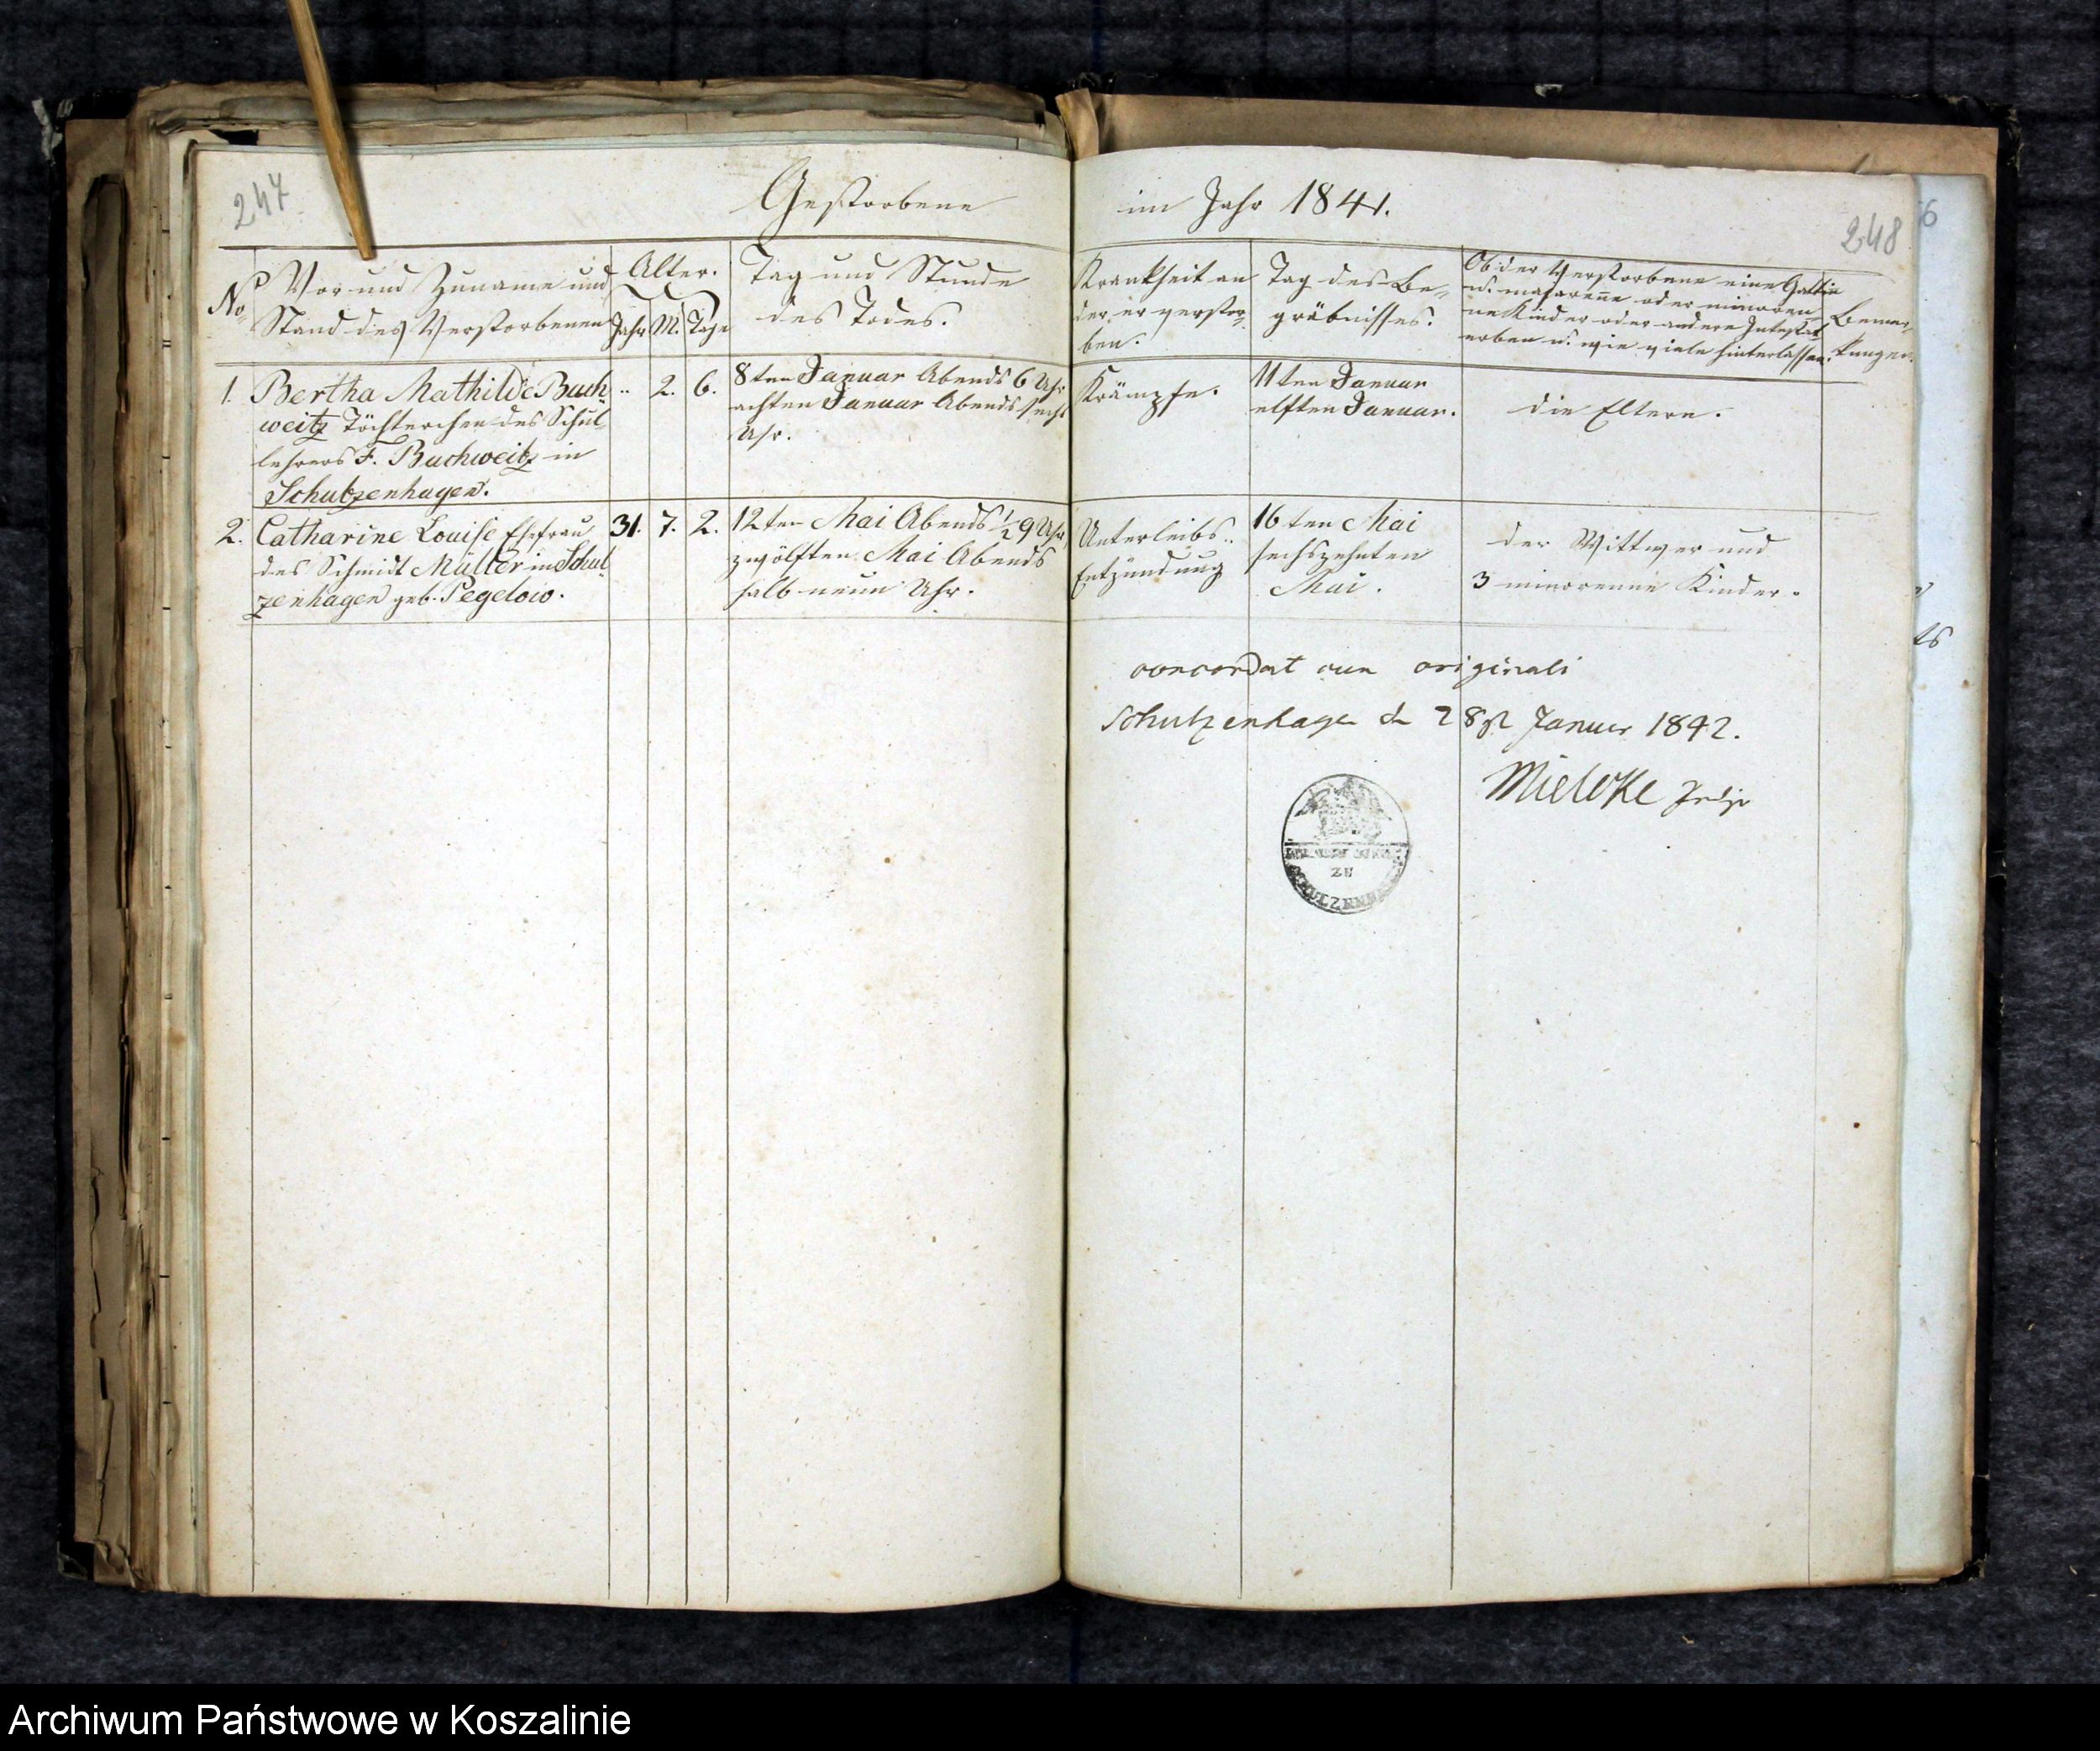 247
Gestorbene
im Jahr 1841.
248
No
Vor- und Zuname und
Stand des Verstorbenen
Alter.
Jahr M. Tage
Tag und Stunde
des Todes.
Krankheit an
der er verstor-
ben.
Tag des Be-
gräbnisses.
Ob der Verstorbene eine Gattin
u. majorenne oder minoren-
ne Kinder oder andere Intestat-
erben u. wie viele hinterlassen.
Bemer-
kungen.
1. Bertha Mathilde Buch-
weitz Töchterchen des Schul-
lehrers F. Buchweitz in
Schulzenhagen.
.. 2. 6.
8ten Januar Abends 6 Uhr
achten Januar Abends sechs
Uhr.
Krämpfe.
11ten Januar
elften Januar.
die Eltern.
2. Catharine Louise Ehefrau
des Schmidt Müller in Schul-
zenhagen geb. Pegelow.
31. 7. 2.
12ten Mai Abends ½ 9 Uhr,
zwölften Mai Abends
halb neun Uhr.
Unterleibs-
Entzündung
16ten Mai
sechszehnten
Mai.
den Wittwer und
3 minorenne Kinder.
concordat cum originali
Schulzenhagen d 28st Januar 1842.
Mielcke
ZU
ts
Archiwum Państwowe w Koszalinie